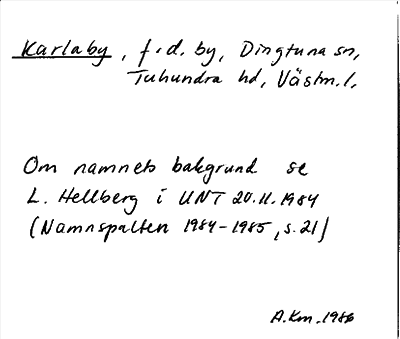 Karlaby, f.d. by, Dingtuna sn,
Tuhundra hd, Västm.l.
Om namnets bakgrund se
L. Hellberg i UNT 20.11.1984
(Namnspalten 1984-1985, s.21)
A.Km.1986